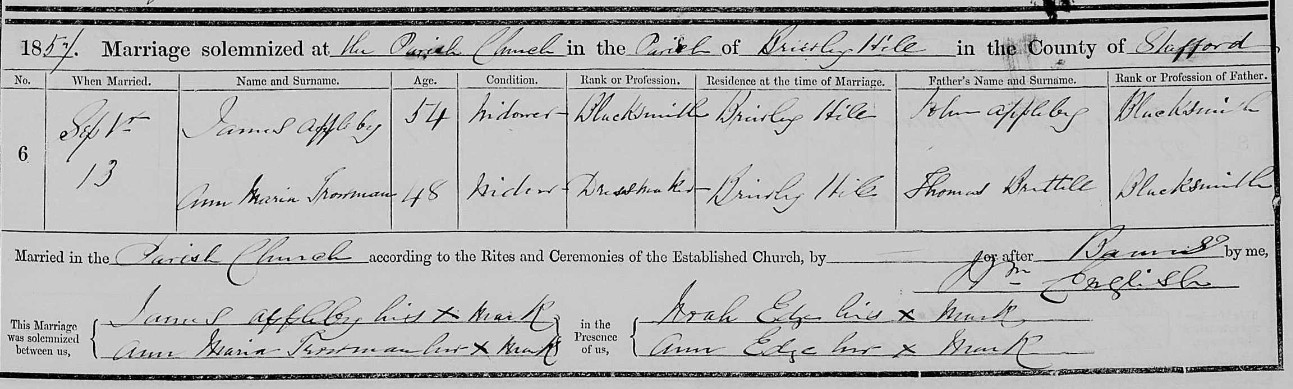 1857. Marriage solemnized at the Parish Church in the Parish of Brierley Hill in the County of Stafford
No. When Married. Name and Surname. Age. Condition. Rank or Profession. Residence at the time of Marriage. Father's Name and Surname. Rank or Profession of Father.
6 Sepbr 13 James Appleby 54 Widower Blacksmith Brierley Hill John Appleby Blacksmith
Ann Maria Trowman 48 Widow Dressmaker Brierley Hill Thomas Brettell Blacksmith
Married in the Parish Church according to the Rites and Ceremonies of the Established Church, by or after Banns by me,
Wm English
This Marriage was solemnized between us, James Appleby his x Mark in the Presence of us, Noah Edge his x Mark
Ann Maria Trowman her x Mark Ann Edge her x Mark